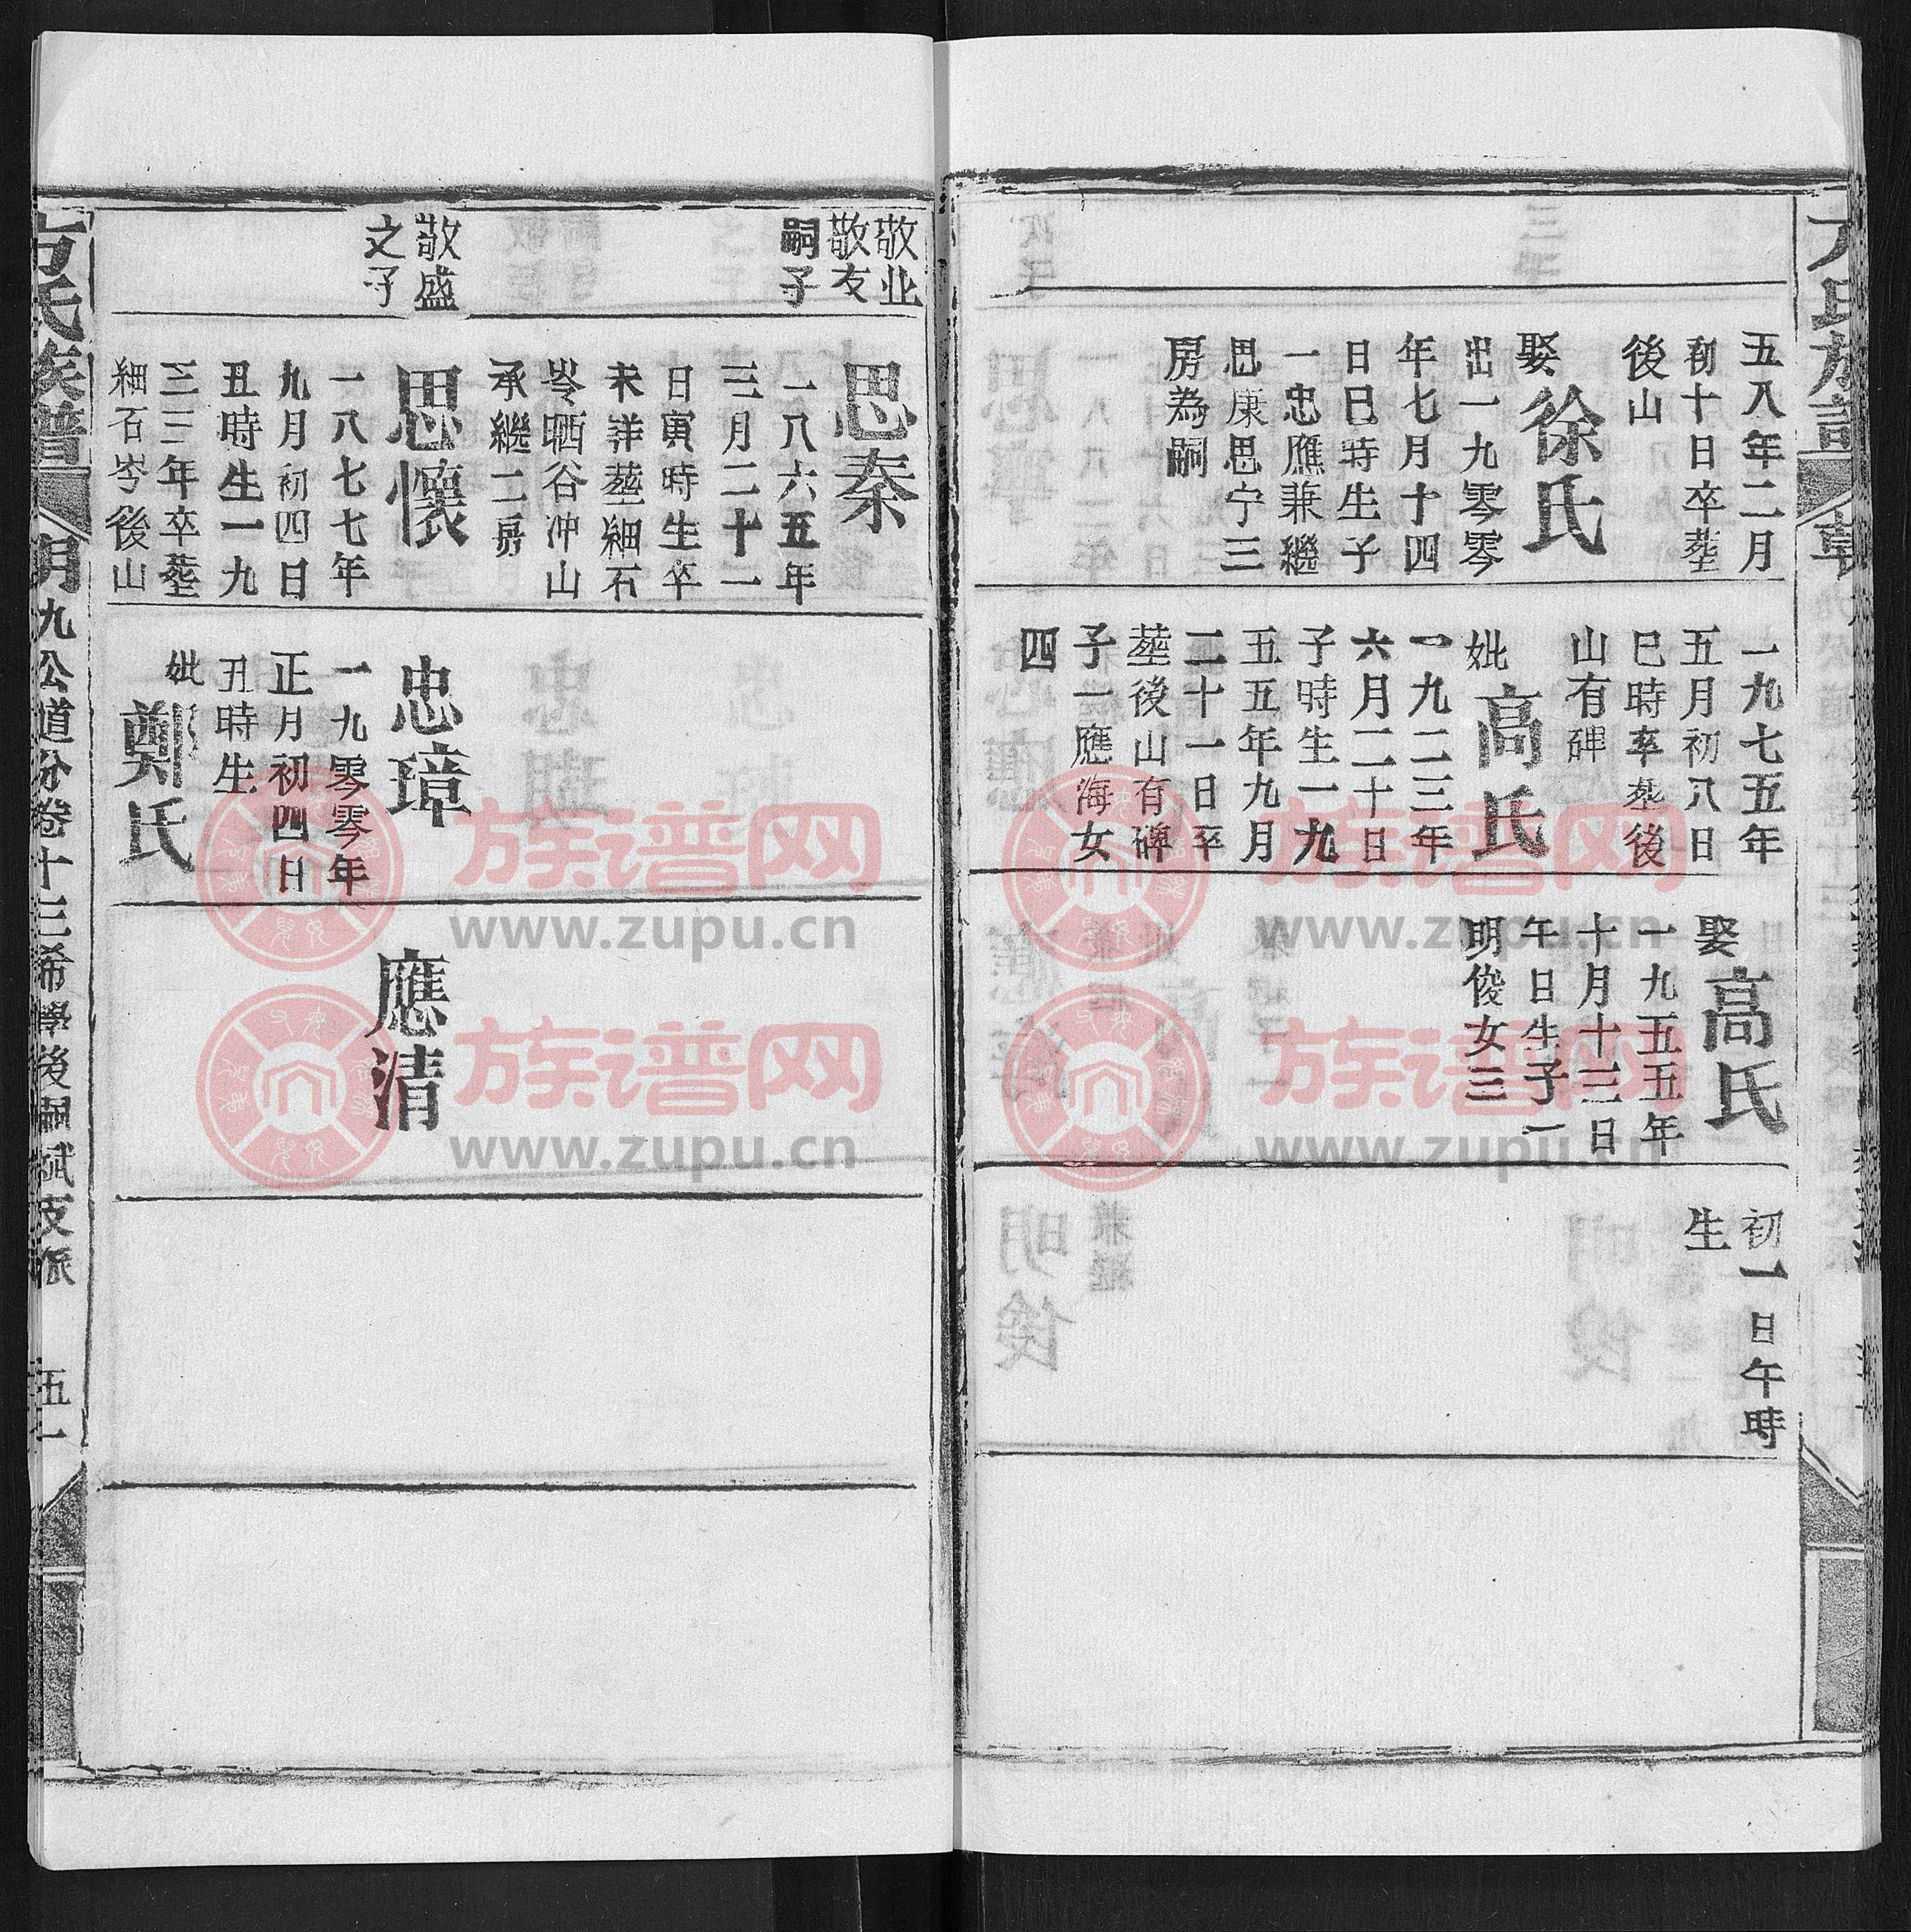 五八年二月
初十日卒塟
後山
娶徐氏
出一九零零
年七月十四
日巳時生子
一忠應兼繼
思康思宁三
房為嗣
一九七五年
五月初八日
巳時卒塟後
山有碑
妣高氏
一九二三年
六月二十日
子時生一九
五五年九月
二十一日卒
塟後山有碑
子一應海女
四
娶高氏
一九五五年
十月十三日
午日生子一
明俊女三
初一日午時
生
敬业
敬友
嗣子
思秦
一八六五年
三月二十二
日寅時生卒
未詳塟細石
岺晒谷冲山
承繼二房
敬盛
之子
思懷
一八七七年
九月初四日
丑時生一九
三三年卒塟
細石岺後山
忠璋
一九零零年
正月初四日
丑時生
妣鄭氏
應清
方氏族譜
明九公道分卷十三希學後嗣斌支派
五一
族谱网
www.zupu.cn
族谱网
www.zupu.cn
族谱网
www.zupu.cn
族谱网
www.zupu.cn